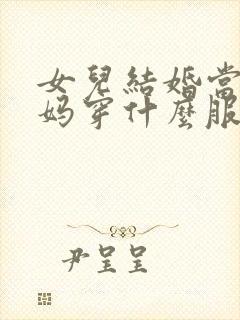 女兒結婚當
妈穿什麼服
尹呈呈